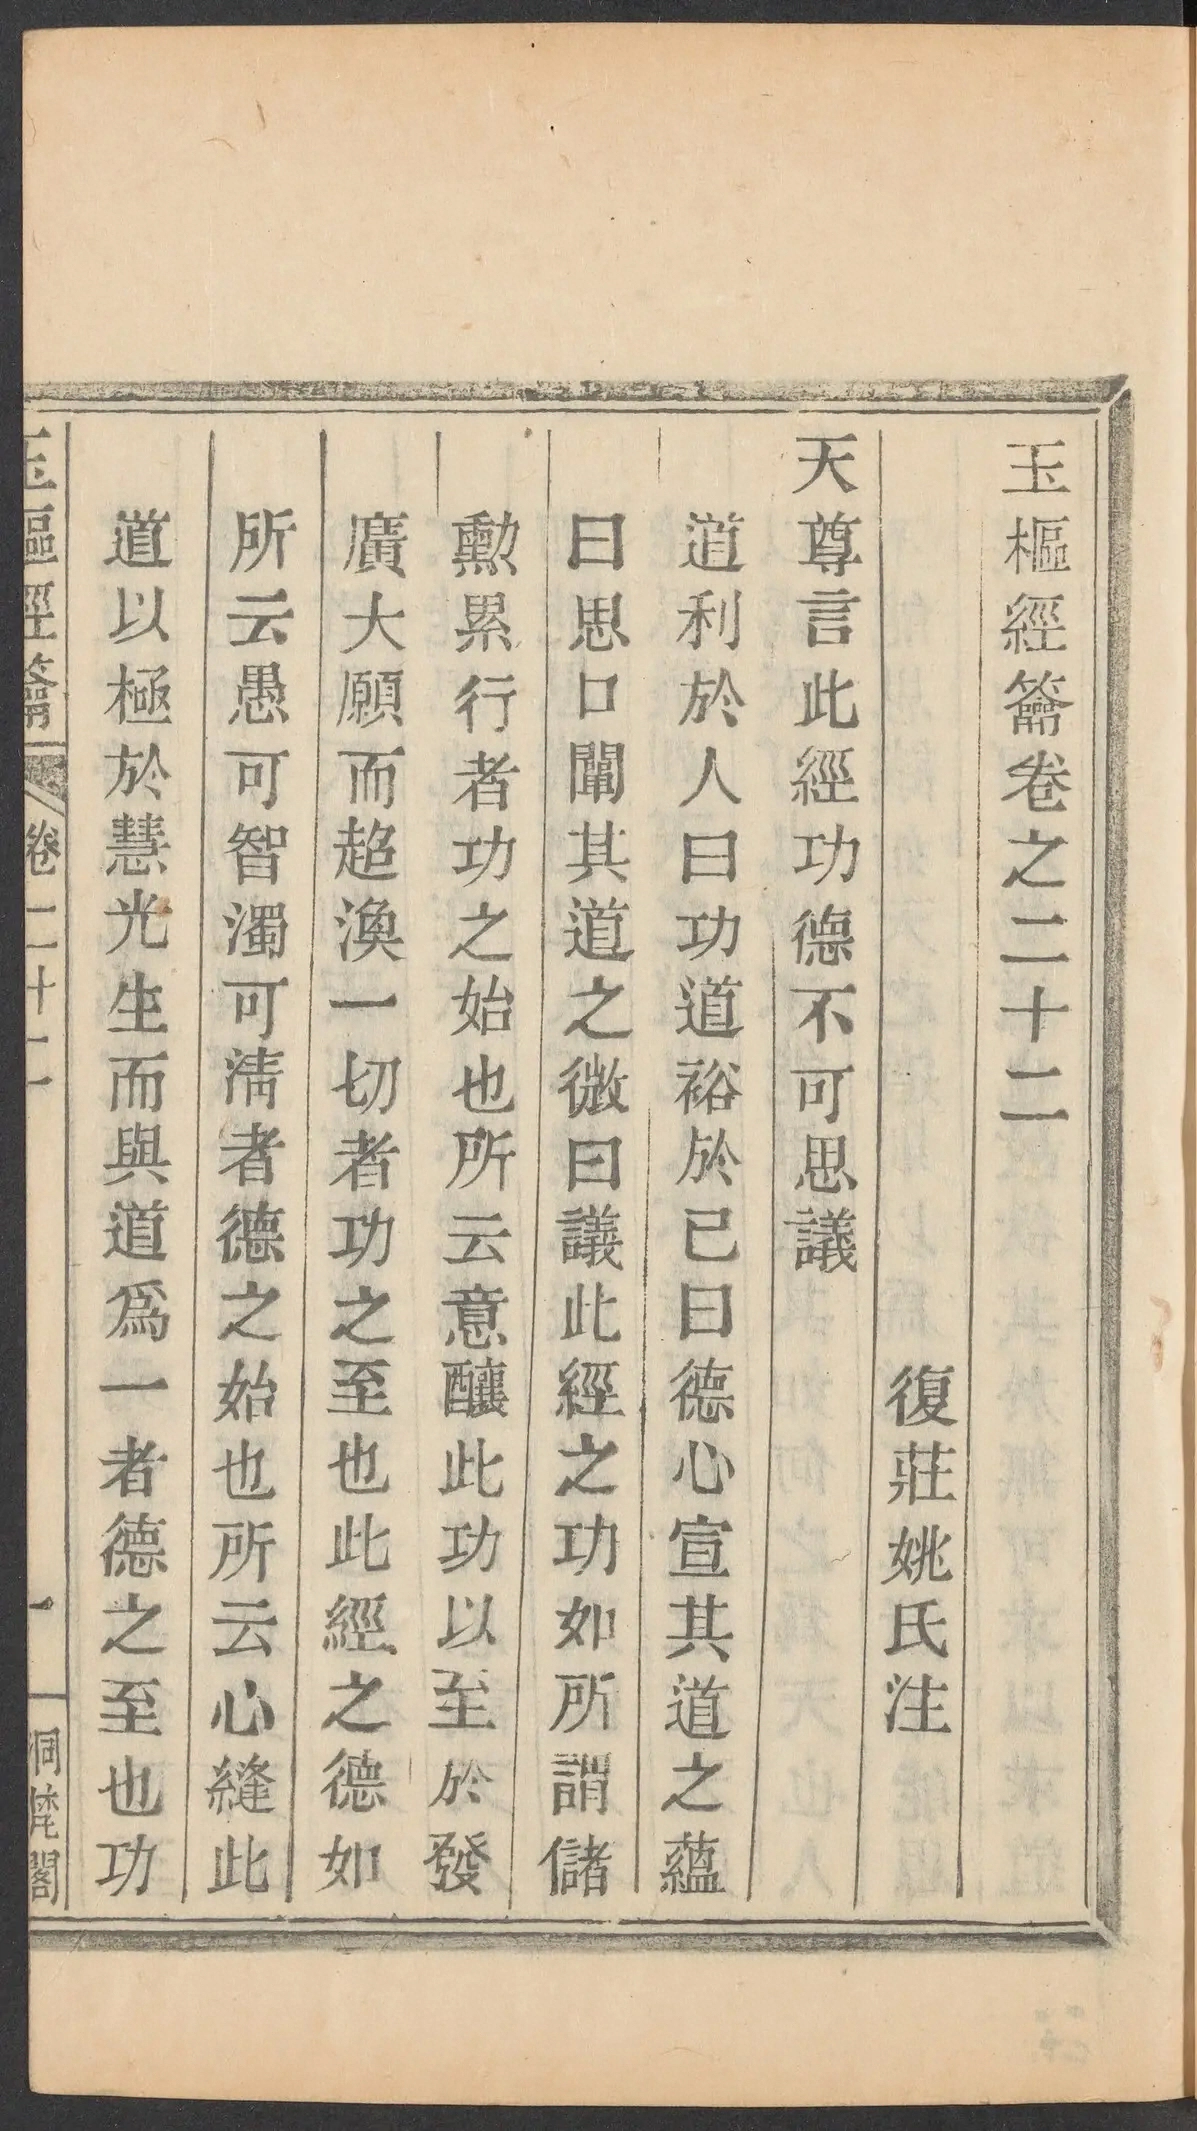 玉樞經籥卷之二十二
復莊姚氏注
天尊言此經功德不可思議
道利於人曰功道裕於己曰德心宣其道之蘊
曰思口闡其道之微曰議此經之功如所謂儲
勳累行者功之始也所云意釀此功以至於發
廣大願而超渙一切者功之至也此經之德如
所云愚可智濁可淸者德之始也所云心縫此
道以極於慧光生而與道爲一者德之至也功
玉樞經籥 卷二十二 一 洞梵閣